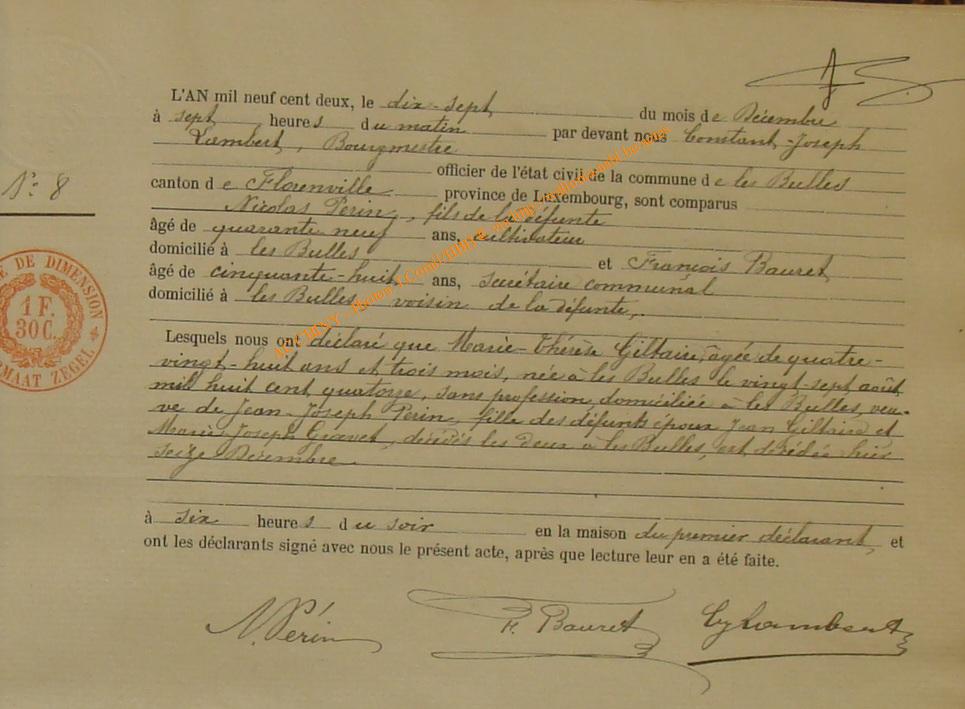 L'AN mil neuf cent deux, le dix-sept du mois de Décembre
à sept heures du matin par devant nous Constant-Joseph
Lambert, Bourgmestre
officier de l'état civil de la commune de les Bulles
N° 8
canton de Florenville province de Luxembourg, sont comparus
Nicolas Perin, fils de la défunte
âgé de quarante neuf ans, cultivateur
domicilié à les Bulles et François Bauret
âgé de cinquante-huit ans, secrétaire communal
domicilié à les Bulles voisin de la défunte,
DE DIMENSION
1 F.
30 C.
FORMAAT ZEGEL
Lesquels nous ont déclaré que Marie-Thérèse Giltaire, âgée de quatre-
vingt-huit ans et trois mois, née à les Bulles le vingt-sept août
mil huit cent quatorze, sans profession, domiciliée à les Bulles, veu-
ve de Jean-Joseph Perin, fille des défunts époux Jean Giltaire et
Marie-Joseph Gravet, décédés les deux à les Bulles, est décédée hier
seize Décembre
à six heures du soir en la maison du premier déclarant, et
ont les déclarants signé avec nous le présent acte, après que lecture leur en a été faite.
N. Périn F. Bauret Lambert